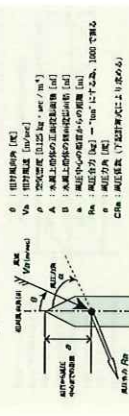 θ : 相対風向角 [度]
Va : 相対風速 [m/sec]
ρ : 空気密度 [0.125 kg・sec / m⁴]
A : 水面上船体の正面投影面積 [㎡]
B : 水面上船体の側面投影面積 [㎡]
a : 風圧中心の船首からの距離 [m]
Ra : 風圧合力 [kg] → "ton" にする為、1000 で割る
α : 風圧力角 [度]
CRa : 風圧係数 (下記計算式により求める)
Va (m/sec)
θ
α
a
Ra